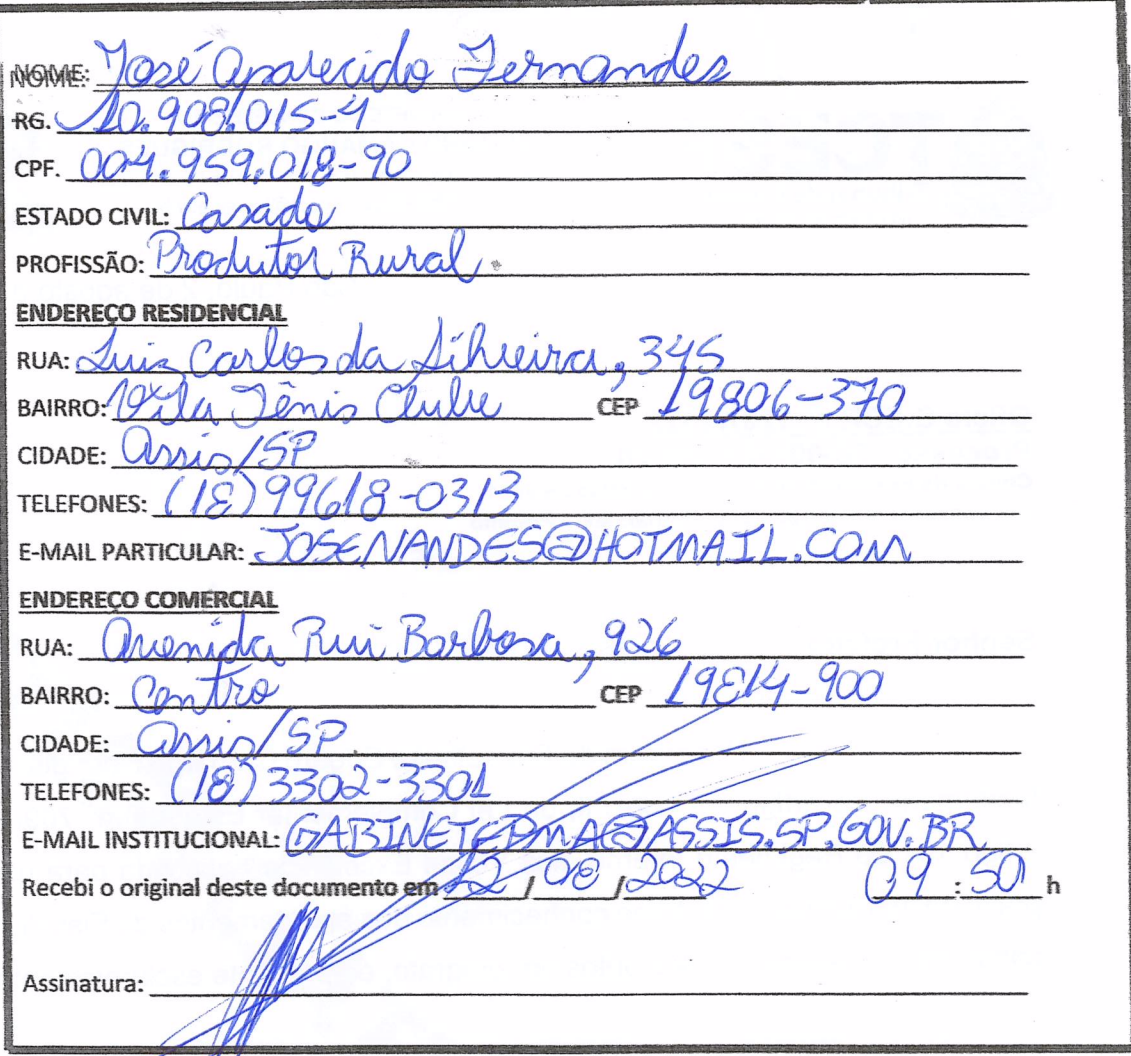 NOME: José Aparecido Fernandes
RG. 10.908.015-4
CPF. 004.959.018-90
ESTADO CIVIL: Casado
PROFISSÃO: Produtor Rural.
ENDEREÇO RESIDENCIAL
RUA: Luiz Carlos da Silveira, 345
BAIRRO: Vila Tênis Clube CEP 19806-370
CIDADE: Assis/SP
TELEFONES: (18) 99618-0313
E-MAIL PARTICULAR: JOSENANDES@HOTMAIL.COM
ENDEREÇO COMERCIAL
RUA: Avenida Rui Barbosa, 926
BAIRRO: Centro CEP 19814-900
CIDADE: Assis/SP
TELEFONES: (18) 3302-3301
E-MAIL INSTITUCIONAL: GABINETEPMA@ASSIS.SP.GOV.BR
Recebi o original deste documento em 12 / 08 / 2022 09 : 50 h
Assinatura: